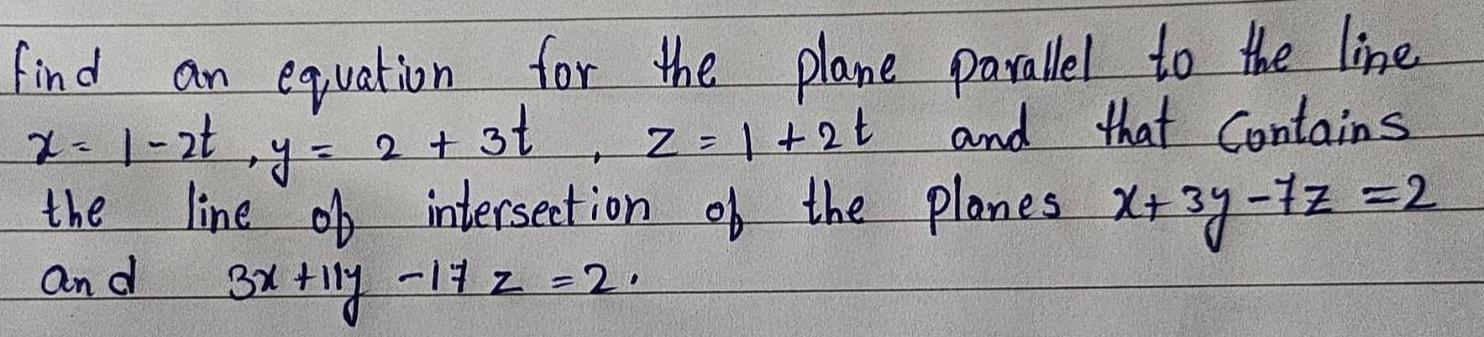 find an equation for the plane parallel to the line
x = 1 - 2t , y = 2 + 3t , z = 1 + 2t and that Contains
the line of intersection of the planes x + 3y - 7z = 2
and 3x + 11y - 17 z = 2.